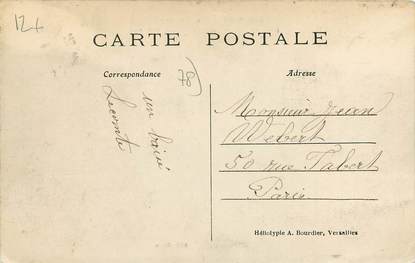 12+
CARTE POSTALE
Correspondance
78
Adresse
un baisé
Lecomte
Monsieur Jean
Webert
50 rue Tabert
Paris
Héliotypie A. Bourdier, Versailles